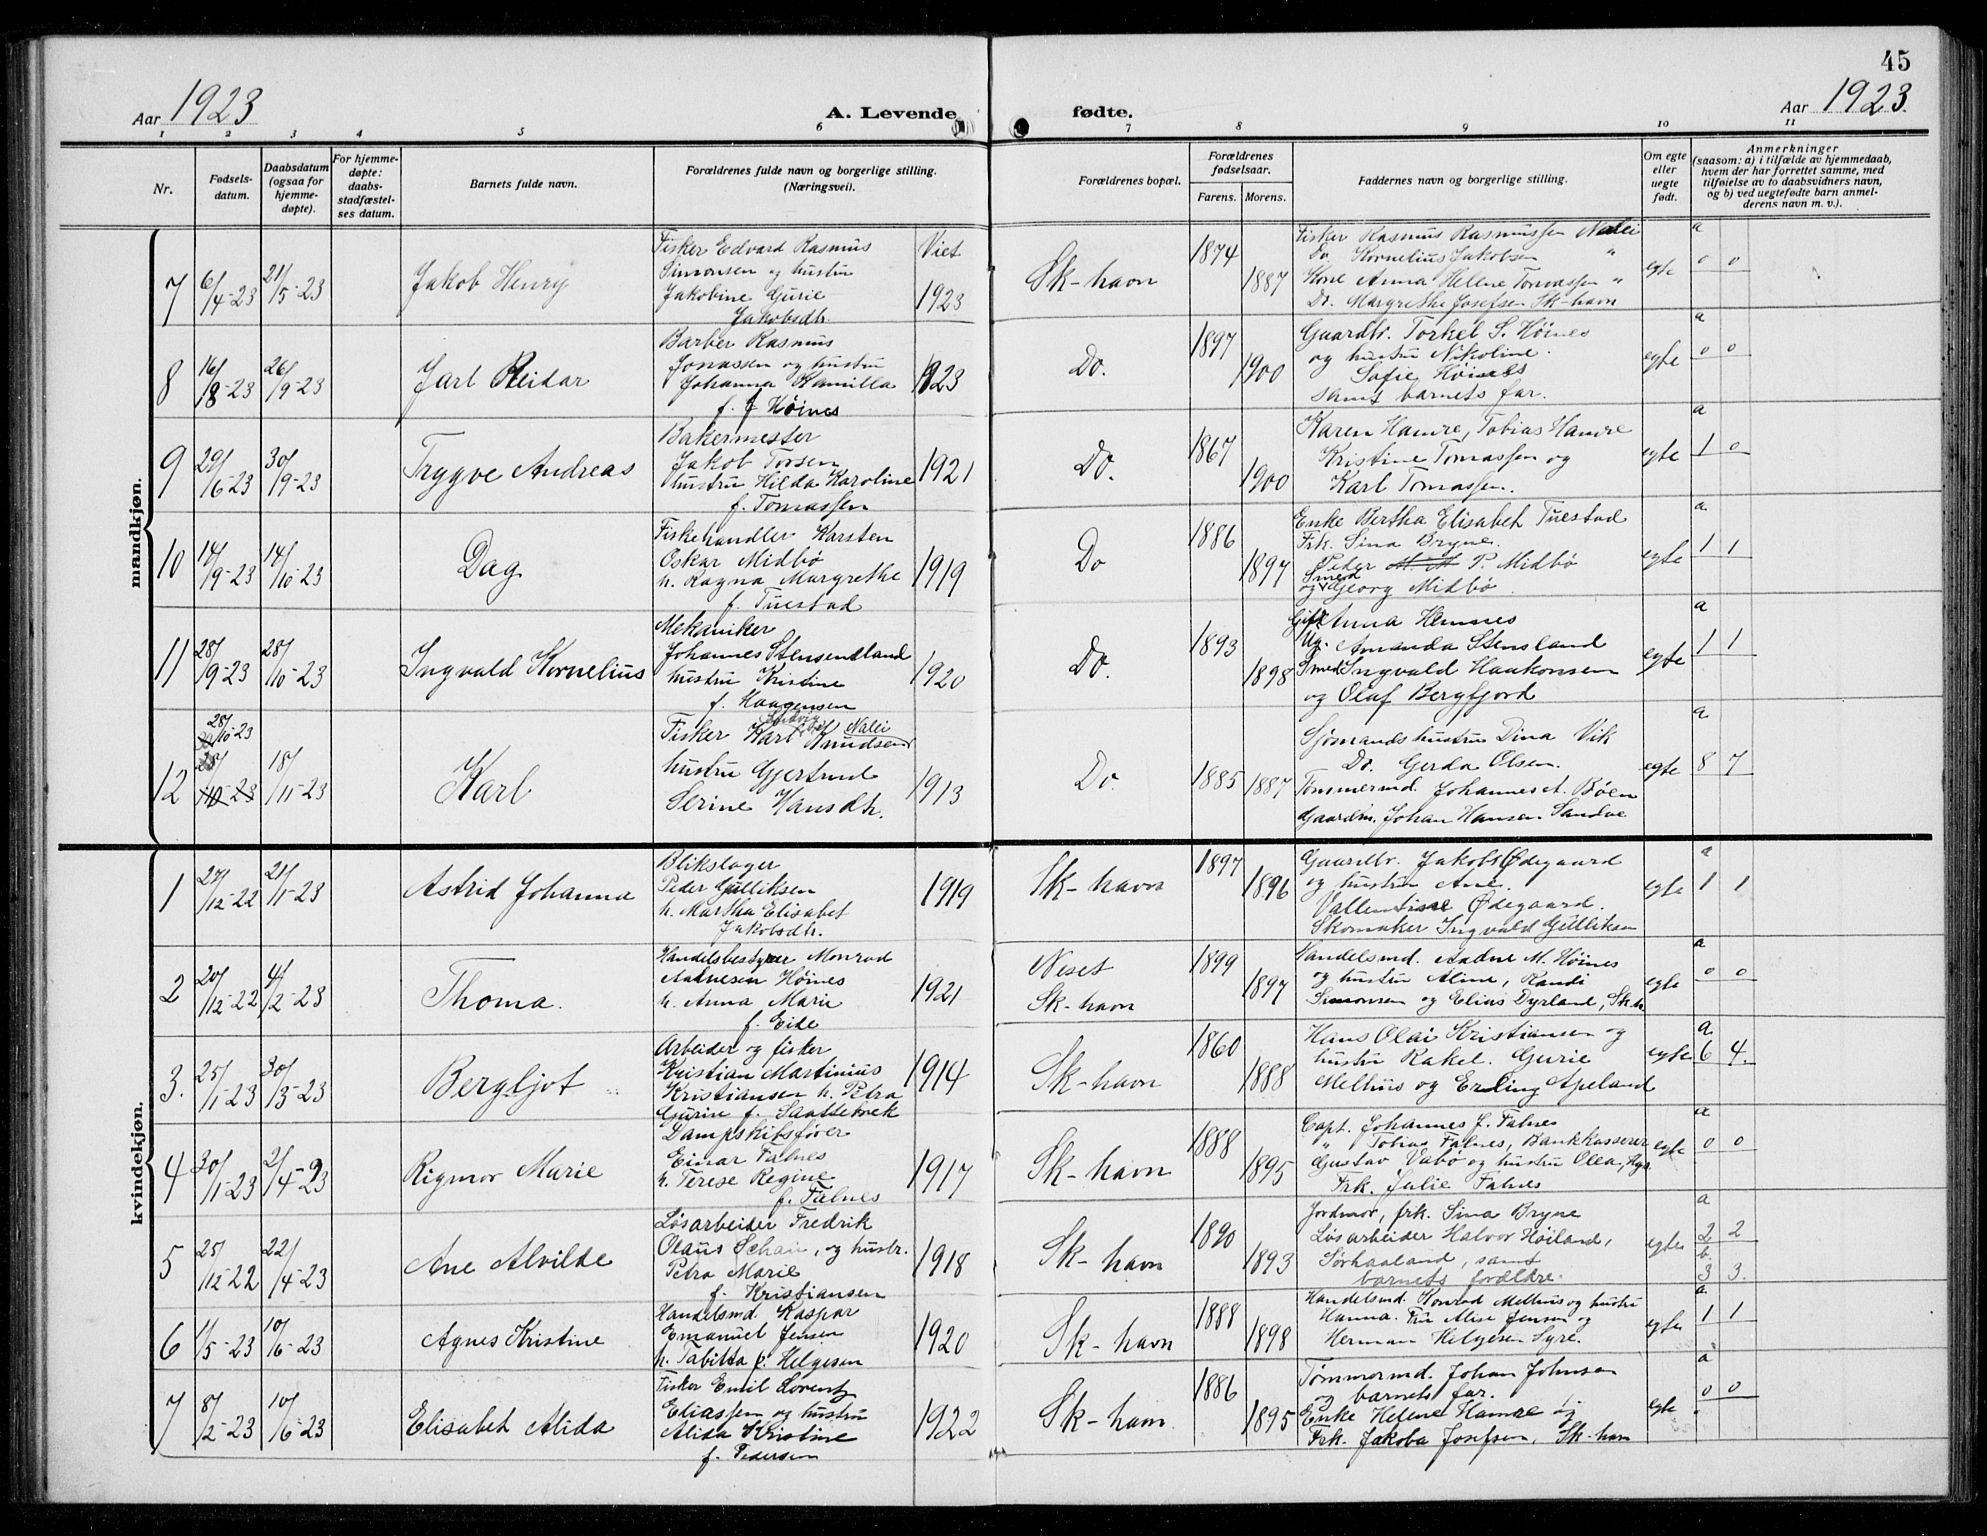 45
Aar 1923
A. Levende
fødte.
Aar 1923.
1 2 3 4 5 6 7 8 9 10 11
Nr.
Fødsels-
datum.
Daabsdatum
(ogsaa for
hjemme-
døpte).
For hjemme-
døpte:
daabs-
stadfæstel-
ses datum.
Barnets fulde navn.
Forældrenes fulde navn og borgerlige stilling.
(Næringsvei).
Forældrenes bopæl.
Forældrenes
fødselsaar.
Farens. Morens.
Faddernes navn og borgerlige stilling.
Om egte
eller
uegte
født.
Anmerkninger
(saasom: a) i tilfælde av hjemmedaab,
hvem der har forrettet samme, med
tilføielse av to daabsvidners navn,
og b) ved uegtefødte barn anmel-
derens navn m. v.).
mandkjøn.
7
6/4-23
21/5-23
Jakob Henry
Fisker Edvard Rasmus
Simonsen og hustru
Jakobine Gurie
Jakobsdtr.
Viet
1923
Sk-havn
1874
1887
Fisker Rasmus Rasmussen Nalei
Do. Kornelius Jakobsen "
Kone Anna Helene Tomassen "
Do. Margrethe Josefsen Sk-havn
egte
a
0 0
8
16/8-23
26/9-23
Jarl Reidar
Barber Rasmus
Jonassen og hustru
Johanna Kamilla
f. Høines
1923
Do.
1897
1900
Gaardbr. Torkel S. Høines
og hustru Nikoline.
Sofie Høines
samt barnets far.
egte
a
0 0
9
29/6-23
30/9-23
Trygve Andreas
Bakermester
Jakob Torsen
hustru Hilda Karoline
f. Tomassen
1921
Do.
1867
1900
Karen Hamre, Tobias Hamre
Kristine Tomassen og
Karl Tomassen.
egte
a
1 0
10
14/9-23
14/10-23
Dag
Fiskehandler Karsten
Oskar Midbø
h. Ragna Margrethe
f. Tuestad
1919
Do
1886
1897
Enke Bertha Elisabet Tuestad
Frk. Sina Bryne.
Peder P. Midbø
Smed
og Georg Midbø.
egte
a
1 1
11
28/9-23
28/10-23
Ingvald Kornelius
Mekaniker
Johannes Stensendland
hustru Kristine
f. Haagensen
1920
Do.
1893
1898
Gift Anna Hemnes
Ug. Amanda Stensland
Smed Ingvald Haakonsen
og Olaf Bergfjord
egte
a
1 1
12
28/10-23
18/11-23
Karl
Fisker Karl Ludvig Knudsen Nalei
hustru Gjertrud
Serine Hansdtr.
1913
Do.
1885
1887
Sjømandshustru Dina Vik
Do. Gerda Olsen.
Tømmermd. Johannes A. Bøen
Gaardm. Johan Hansen Sandve
egte
a
8 7
kvindekjøn.
1
27/12-22
21/1-23
Astrid Johanna
Blikslager
Peder Gulliksen
h. Martha Elisabet
Jakobsdtr.
1919
Sk-havn
1897
1896
Gaardbr. Jakob Ødegaard
og hustru Ane.
Vallentine Ødegaard.
Skomaker Ingvald Gulliksen
egte
a
1 1
2
20/12-22
4/2-23
Thoma.
Handelsbestyrer Monrad
Aadnesen Høines
h. Anna Marie
f. Eide
1921
Neset
Sk-havn
1899
1897
Handelsmd. Aadne M. Høines
og hustru Aline, Randi
Simonsen og Elias Dyrland, Sk.h.
egte
a
0 0
3.
25/1-23
30/3-23
Bergljot
Arbeider og fisker
Kristian Martinius
Kristiansen h. Petra
Gurine f. Saaltebrek
1914
Sk-havn
1860
1888
Hans Olai Kristiansen og
hustru Rakel. Gurie
Melhus og Erling Apeland
egte
a
6 4.
4
30/1-23
2/4-23
Rigmor Marie
Dampskibsfører
Einar Falnes
h. Terese Regine
f. Falnes
1917
Sk-havn
1888
1895
Capt. Johannes J. Falnes
" Tobias Falnes, Bankkasserer
Gustav Vabø og hustru Olea,
Frk. Julie Falnes
egte
a
0 0
5
25/12-22
22/4-23
Ane Alvilde
Løsarbeider Fredrik
Olaus Schau, og hustr.
Petra Marie
f. Kristiansen
1918
Sk-havn
1890
1893
Jordmor, frk. Sina Bryne
Løsarbeider Halvor Høiland,
Sørhaaland, samt
barnets forældre.
egte
a
2 2
b.
3 3.
6
1/5-23
10/6-23
Agnes Kristine
Handelsmd. Kaspar
Emanuel Jensen
h. Tabitta f. Helgesen
1920
Sk-havn
1888
1898
Handelsmd. Konrad Melhus og hustru
Hanna. Fru Alise Jensen og
Herman Helgesen Syre.
egte
a
1 1
7
8/2-23
10/6-23
Elisabet Alida
Fisker Emil Lorentz
Eliassen og hustru
Alida Kristine
f. Pedersen
1922
Sk-havn
1886
1895
Tømmermd. Johan Johnsen
og barnets far.
Enke Helene Hamre og
Frk. Jakoba Josefsen, Sk-havn
egte
a
0 0